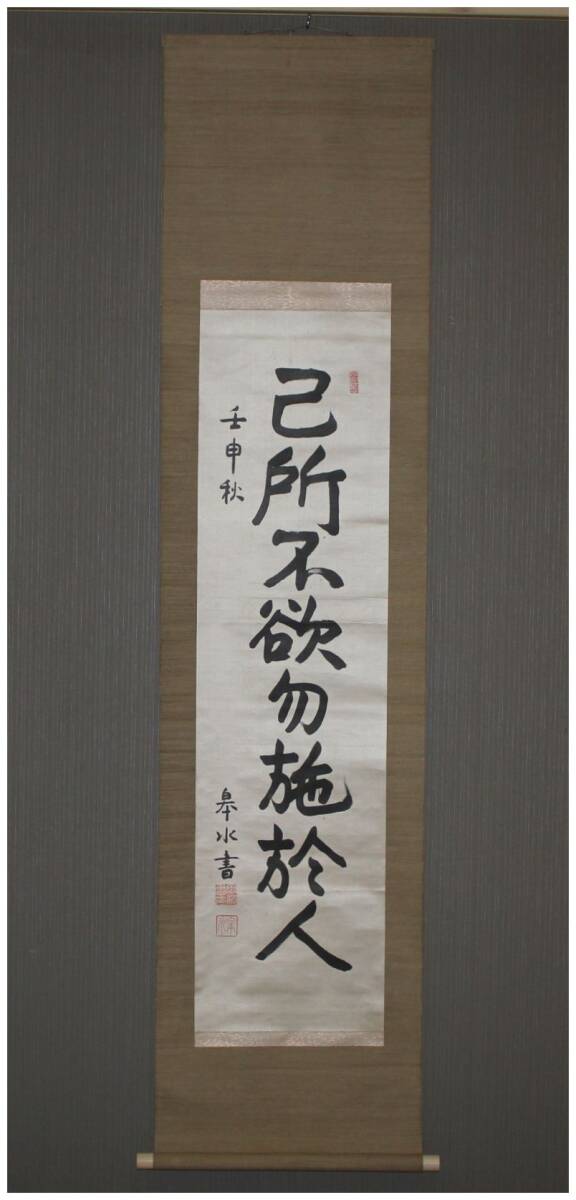 己所不欲勿施於人
壬申秋
皋水書